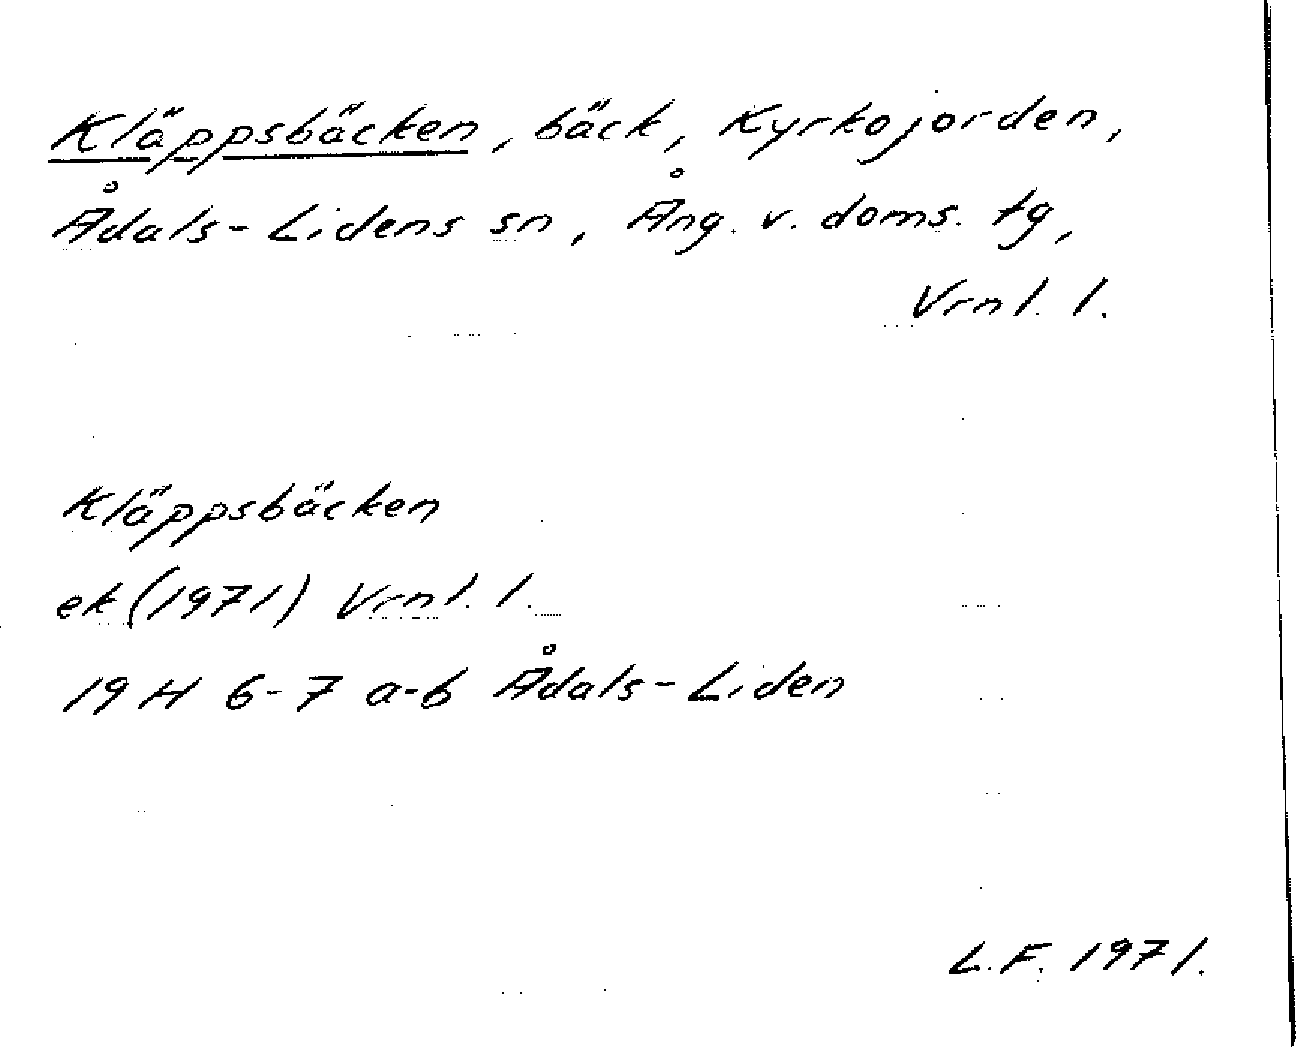 Kläppsbäcken, bäck, Kyrkojorden,
Ådals-Lidens sn, Ång. v. doms. tg,
Vrnl. l.
Kläppsbäcken
ek (1971) Vrnl. l.
19 H 6-7 a-b Ådals-Liden
L.F. 1971.